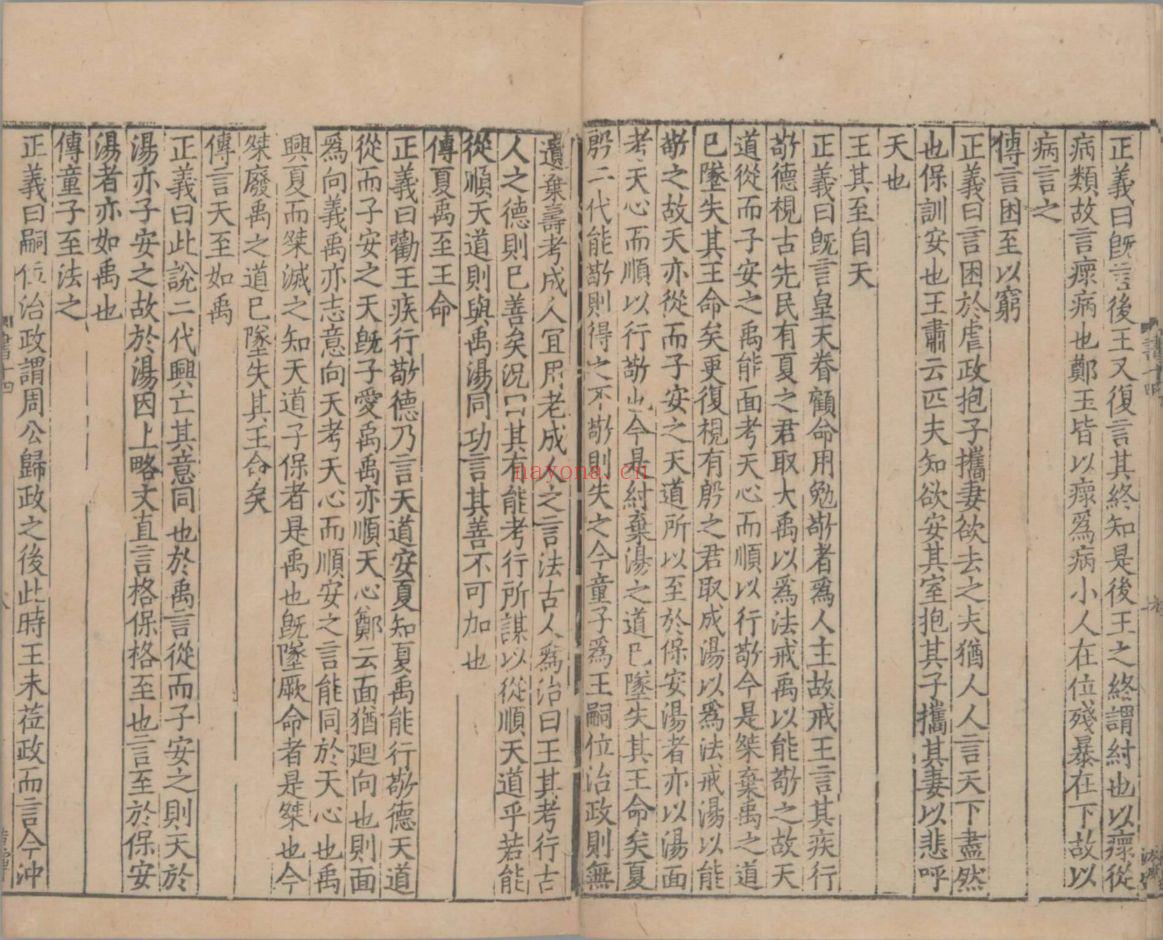 正義曰旣言後王又復言其終知是後王之終謂紂也以瘝從
病類故言瘝病也鄭王皆以瘝爲病小人在位殘暴在下故以
病言之
傳言困至以窮
正義曰言困於虐政抱子攜妻欲去之夫猶人人言天下盡然
也保訓安也王肅云匹夫知欲安其室抱其子攜其妻以悲呼
天也
王其至自天
正義曰旣言皇天眷顧命用勉敬者爲人主故戒王言其疾行
敬德視古先民有夏之君取大禹以爲法戒禹以能敬之故天
道從而子安之禹能面考天心而順以行敬今是桀棄禹之道
巳墜失其王命矣更復視有殷之君取成湯以爲法戒湯以能
敬之故天亦從而子安之天道所以至於保安湯者亦以湯面
考天心而順以行敬也今是紂棄湯之道巳墜失其王命矣夏
殷二代能敬則得之不敬則失之今童子爲王嗣位治政則無
遺棄壽考成人宜用老成人之言法古人爲治曰王其考行古
人之德則巳善矣況曰其有能考行所謀以從順天道乎若能
從順天道則與禹湯同功言其善不可加也
傳夏禹至王命
正義曰勸王疾行敬德乃言天道安夏知夏禹能行敬德天道
從而子安之天旣子愛禹禹亦順天心鄭云面猶迴向也則面
爲向義禹亦志意向天考天心而順安之言能同於天心也禹
興夏而桀滅之知天道子保者是禹也旣墜厥命者是桀也今
桀廢禹之道巳墜失其王命矣
傳言天至如禹
正義曰此說二代興亡其意同也於禹言從而子安之則天於
湯亦子安之故於湯因上略文直言格保格至也言至於保安
湯者亦如禹也
傳童子至法之
正義曰嗣位治政謂周公歸政之後此時王未莅政而言今沖
書十四
nayona.cn